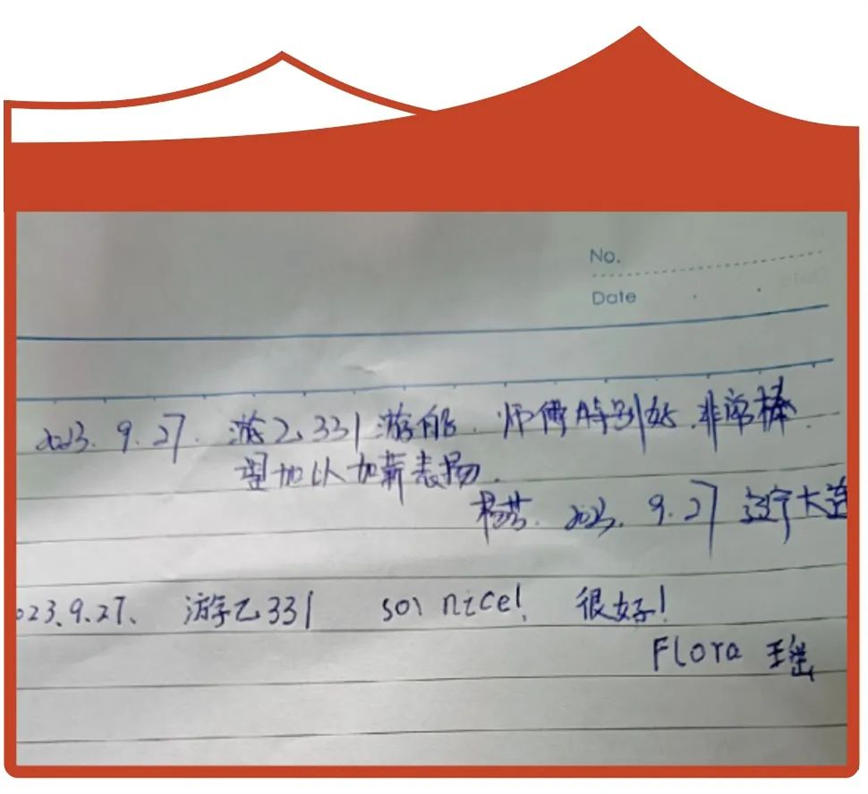 No.
Date
2023. 9. 27. 游乙331游船. 师傅特别好.非常棒.
望加以加薪表扬.
杨芸. 2023. 9. 27 辽宁大连
023.9.27、 游乙331 so nice! 很好!
Flora 王瑶